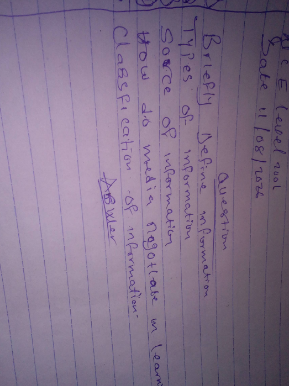 NCE Level 200L
Date 11/08/2026
Question
Briefly Define information
Types of information
Source of information
How do media negotiate in learn
Classfication of information.
Answer